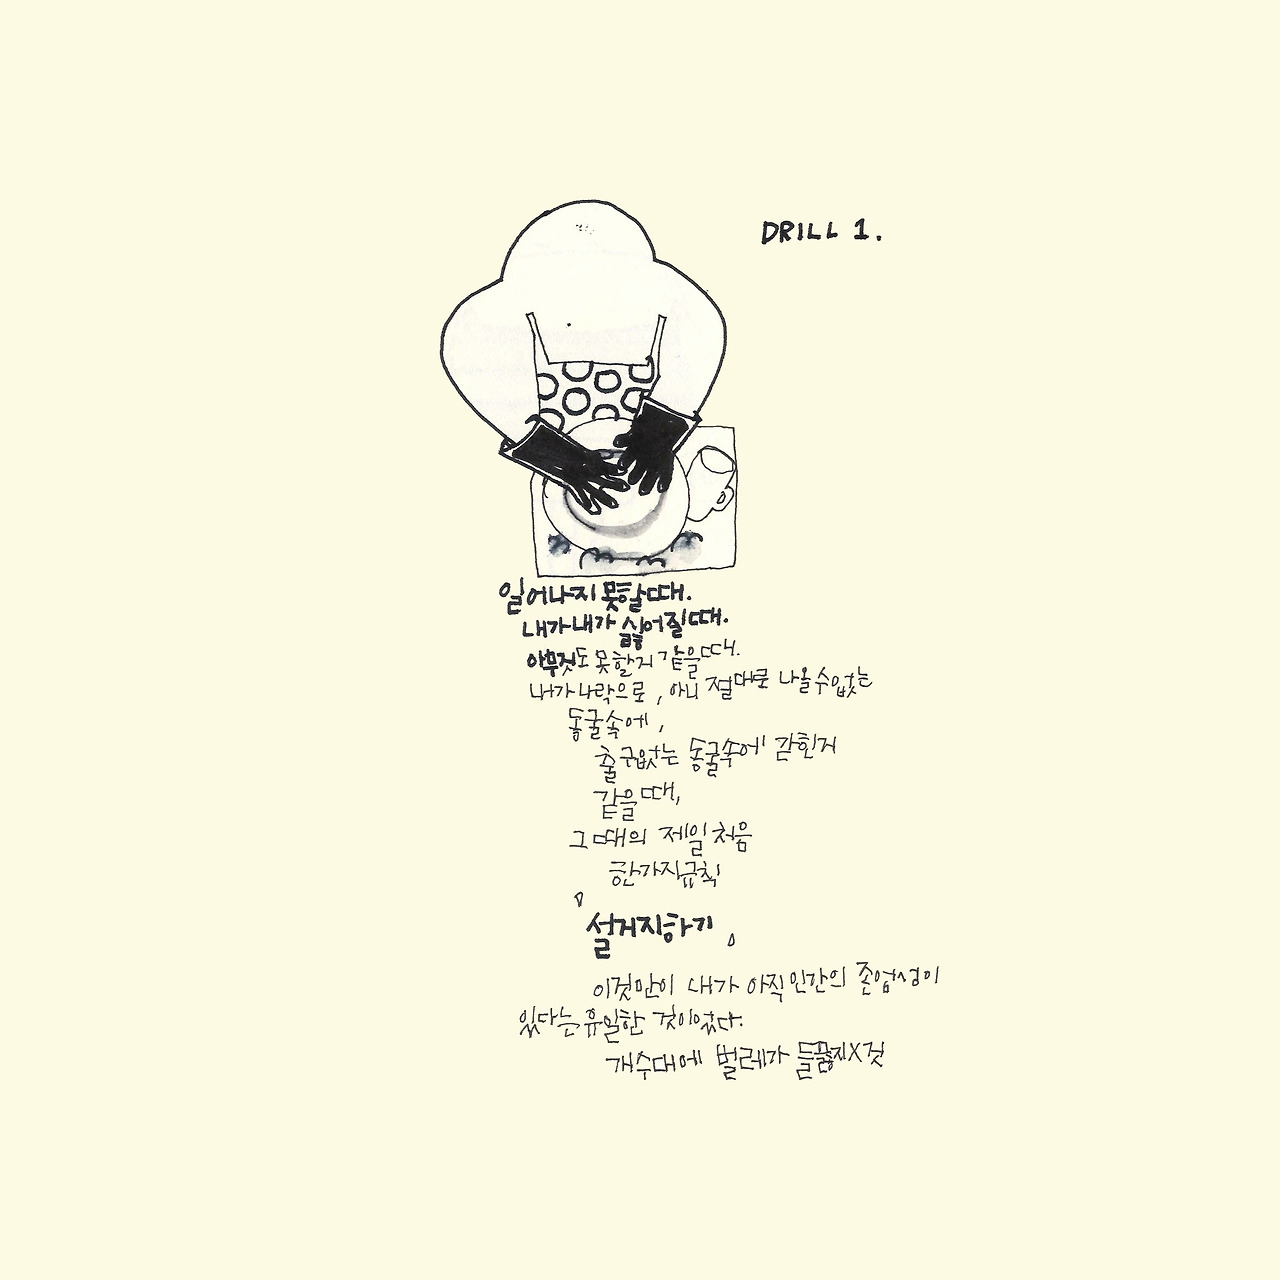 DRILL 1.
일어나지 못할때.
내가 내가 싫어질때.
아무것도 못할거 같을때.
내가 나락으로, 아니 절대로 나올수없는
동굴속에,
출구없는 동굴속에 갇힌거
같을때,
그때의 제일 처음
한가지규칙
설거지하기
이것만이 내가 아직 인간의 존엄성이
있다는 유일한 것이었다.
개수대에 벌레가 들끓지X것